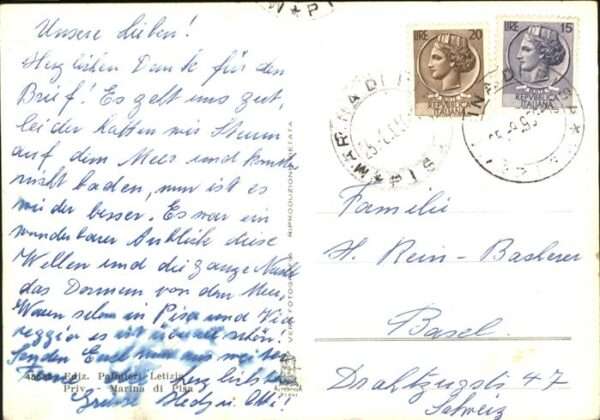 Unsere Lieben!
Herzlichen Dank für den
Brief! Es geht uns gut,
leider hatten wir Sturm
auf dem Meer und konnte
nicht baden, nun ist es
wieder besser. Es war ein
wunderbarer Anblick diese
Wellen und die ganze Nacht
das Donnern von dem Meer,
Waren schon in Pisa und Via
reggio es ist überall schön!
Senden Euch nun aus weiter
Ferne herzlichste
Grüsse
Ediz. Palmieri-Letizia
Priv. - Marina di Pisa
VERA FOTOGRAFIA RIPRODUZIONE VIETATA
LIRE 20
REPUBBLICA
ITALIANA
LIRE 15
REPUBBLICA
ITALIANA
MARINA DI
PISA
Familie
H. Rein-Basherer
Basel
Drahtzugstr 47
Schweiz